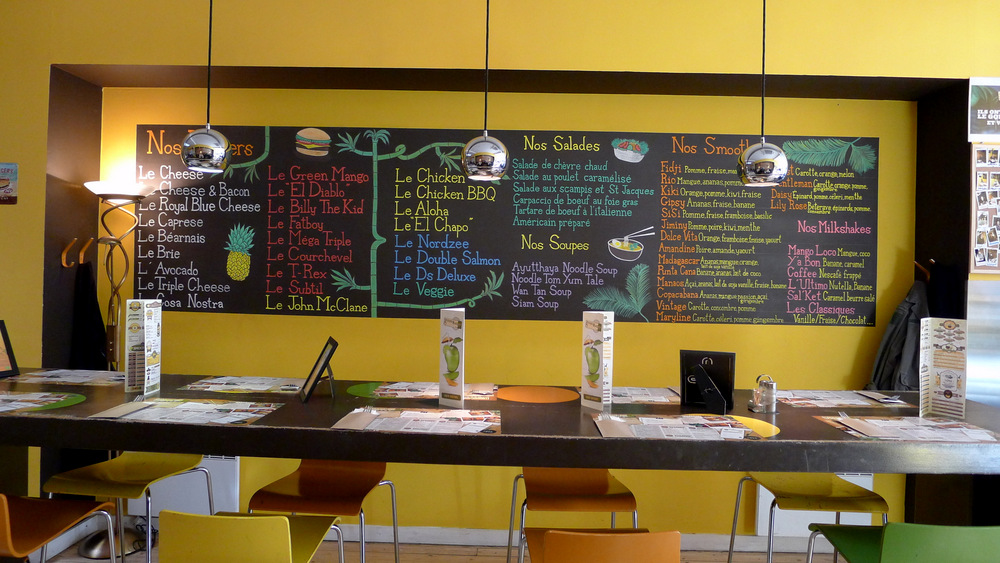 Nos
Le Cheese
Le Cheese & Bacon
Le Royal Blue Cheese
Le Caprese
Le Béarnais
Le Brie
L'Avocado
Le Triple Cheese
Cosa Nostra
Le Green Mango
Le "El Diablo"
Le Billy The Kid
Le Fatboy
Le Méga Triple
Le Courchevel
Le T-Rex
Le Subtil
Le John McClane
Le Chicken
Le Chicken BBQ
Le Aloha
Le "El Chapo"
Le Nordzee
Le Double Salmon
Le Ds Deluxe
Le Veggie
Nos Salades
Salade de chèvre chaud
Salade au poulet caramélisé
Salade aux scampis et St Jacques
Carpaccio de boeuf au foie gras
Tartare de boeuf à l'italienne
Américain préparé
Nos Soupes
Ayutthaya Noodle Soup
Noodle Tom Yum Tale
Wan Tan Soup
Siam Soup
Nos Smoot
Fidji Pomme, fraise,
Rio Mangue, ananas, pomme
Kiki Orange, pomme, kiwi, fraise
Gipsy Ananas, fraise, banane
SiSi Pomme, fraise, framboise, basilic
Jiminy Pomme, poire, kiwi, menthe
Dolce Vita Orange, framboise, fraise, yaourt
Amandine Poire, amande, yaourt
Madagascar Ananas, mangue, orange,
Punta Cana Banane, ananas, lait de coco
Manaos Açaï, ananas, lait de soja vanille, fraise, banane
Copacabana Ananas, mangue, passion, açaï
gingembre
Vintage Carotte, concombre, pomme
Maryline Carotte, céleri, pomme, gingembre
Carotte, orange, melon
Carotte, orange, pomme,
gingembre
Daisy Epinard, pomme, celeri, menthe
Lily Rose Betterave, épinard, pomme,
Nos Milkshakes
Mango Loco Mangue, coco
Y'a Bon Banane, caramel
Coffee Nescafé frappé
L'Ultimo Nutella, Banane
Sal'Ket Caramel beurre salé
Les Classiques
Vanille/Fraise/Chocolat...